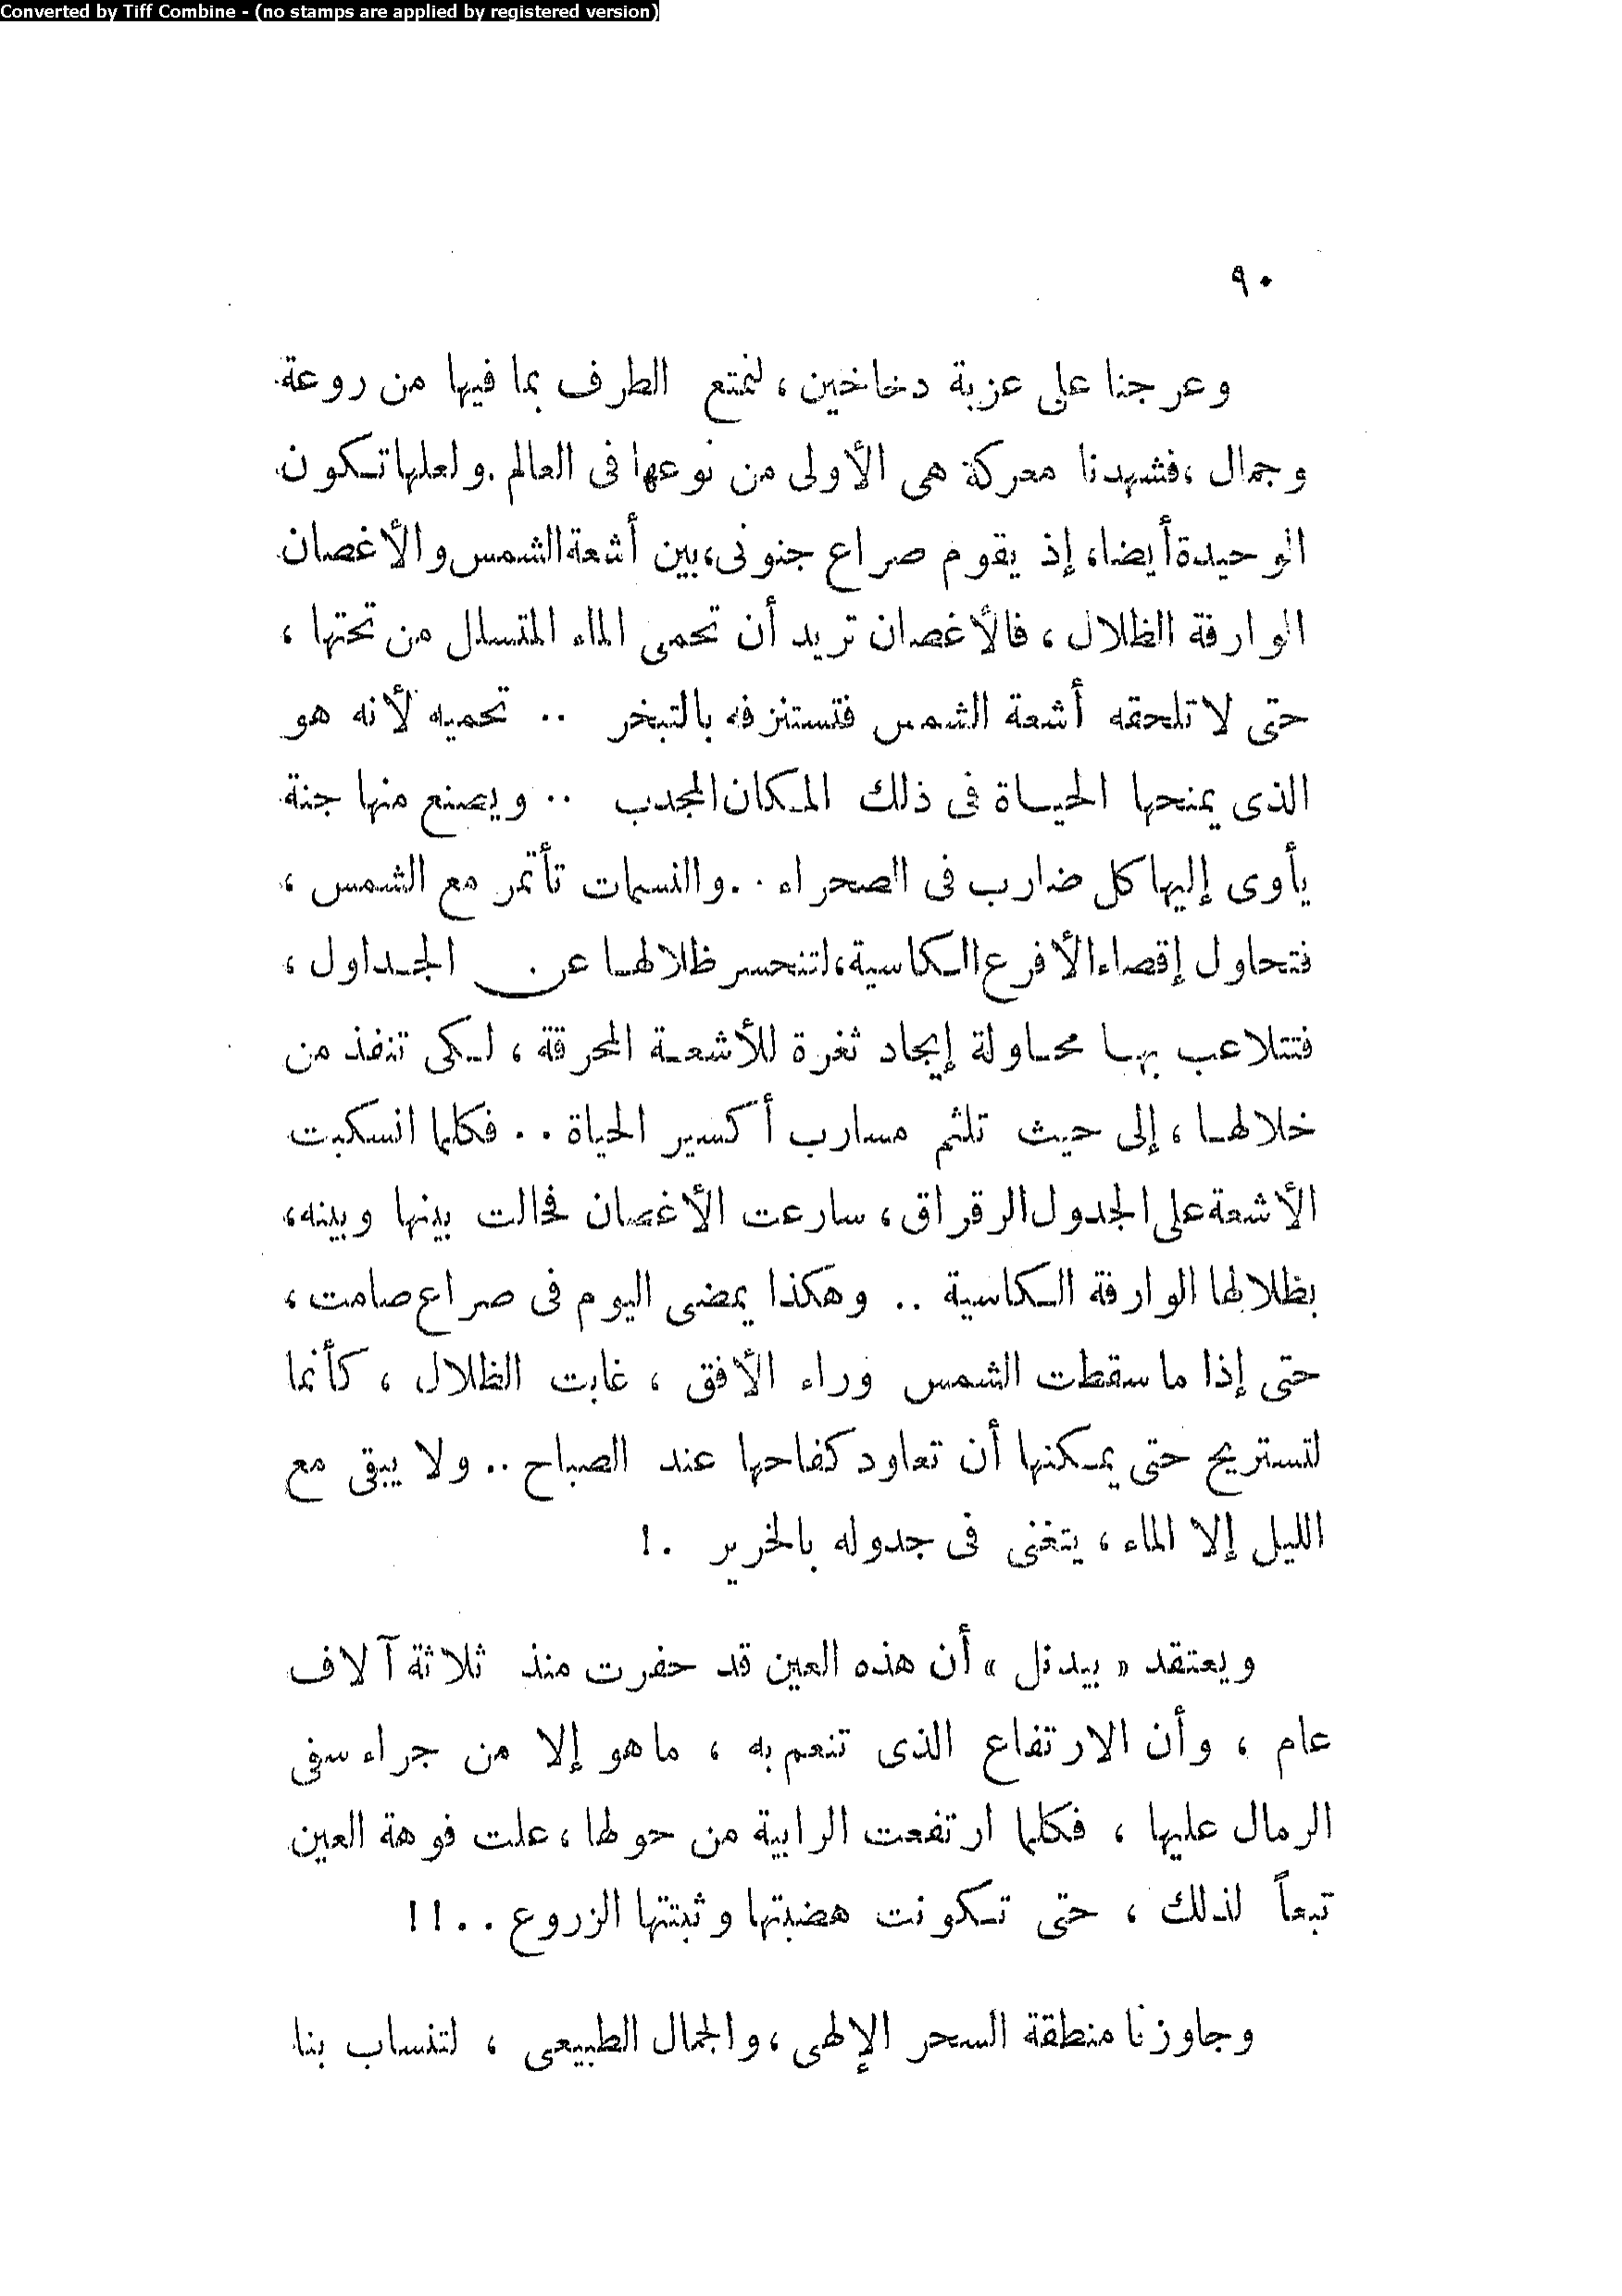 Converted by Tiff Combine - (no stamps are applied by registered version)
٩٠
وعرجنا على عزبة دخاخين، لنمتع الطرف بما فيها من روعة
وجمال، فشهدنا معركة هى الأولى من نوعها فى العالم. ولعلها تكون
الوحيدة أيضا، إذ يقوم صراع جنونى، بين أشعة الشمس والأغصان
الوارفة الظلال، فالأغصان تريد أن تحمى الماء المتسلل من تحتها،
حتى لا تلحقه أشعة الشمس فتستنزفه بالتبخر .. تحميه لأنه هو
الذى يمنحها الحياة فى ذلك المكان المجدب .. ويصنع منها جنة
يأوى إليها كل ضارب فى الصحراء .. والنسمات تأتمر مع الشمس،
فتحاول إقصاء الأفرع الكاسية، لتنحسر ظلالها عن الجداول،
فتتلاعب بها محاولة إيجاد ثغرة للأشعة المحرقة، لكى تنفذ من
خلالها، إلى حيث تلثم مسارب أكسير الحياة .. فكلما انسكبت
الأشعة على الجدول الرقراق، سارعت الأغصان فحالت بينها وبينه،
بظلالها الوارفة الكاسية .. وهكذا يمضى اليوم فى صراع صامت،
حتى إذا ما سقطت الشمس وراء الأفق، غابت الظلال، كأنما
لتستريح حتى يمكنها أن تعاود كفاحها عند الصباح .. ولا يبقى مع
الليل إلا الماء، يتغنى فى جدوله بالخرير .!
ويعتقد « بيدنل » أن هذه العين قد حفرت منذ ثلاثة آلاف
عام، وأن الارتفاع الذى تنعم به، ما هو إلا من جراء سفى
الرمال عليها، فكلما ارتفعت الرابية من حولها، علت فوهة العين
تبعاً لذلك، حتى تكونت هضبتها وثبتتها الزروع ..!!
وجاوزنا منطقة السحر الإلهى، والجمال الطبيعى، لتنساب بنا